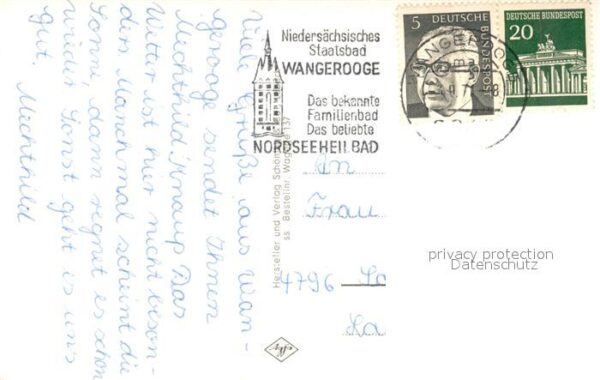 Viele Grüße aus Wan-
gerooge sendet Ihnen
Mechthild Knaup. Das
Wetter ist hier nicht beson-
ders. Manchmal scheint die
Sonne, dann regnet es schon
wieder. Sonst geht es uns
gut.
Mechthild
Niedersächsisches
Staatsbad
WANGEROOGE
Das bekannte
Familienbad
Das beliebte
NORDSEEHEILBAD
5
DEUTSCHE
BUNDESPOST
DEUTSCHE BUNDESPOST
20
WANGEROOGE
Hersteller und Verlag Schön
Bestellnr. Wange 137
An
Frau
4796
privacy protection
Datenschutz